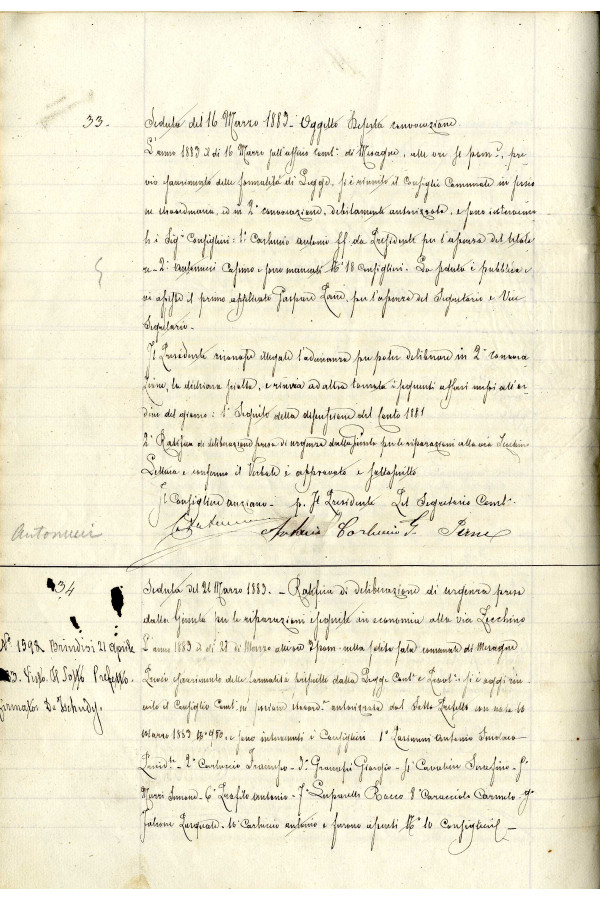 33.- Seduta del 16 Marzo 1883 - Oggetto Deserta convocazione
L'anno 1883 il dì 16 Marzo nell'ufficio Com.le di Mesagne, alle ore pom.e, pre
vio esaurimento delle formalità di Legge, si è riunito il Consiglio Comunale in sessio
ne straordinaria, ed in 2a convocazione, debitamente autorizzata, e sono intervenu
ti i Sig.i Consiglieri: 1° Carluccio Antonio ff da Presidente per l'assenza del titola
re - 2° Antonucci e sono mancati N° 18 Consiglieri. La seduta è pubblica e
vi assiste il primo applicato Gaspare, per l'assenza del Segretario e Vice
Segretario.
Il Presidente illegale l'adunanza per poter deliberare in 2a convoca
zione, la dichiara sciolta, e rinvia ad altra tornata i seguenti affari messi all'or
dine del giorno: 1° Seguito della discussione del Conto 1881
2° Ratifica di deliberazione presa di urgenza dalla Giunta per le riparazioni alla via
Letto e confermo il Verbale è approvato e sottoscritto
Il Consigliere anziano - p. Il Presidente Pel Segretario Com.le
Antonucci Antonio Carluccio G.
Antonucci
34
Seduta del 21 Marzo 1883. - Ratifica di deliberazione di urgenza presa
dalla Giunta per le riparazioni eseguite in economia alla via
N° 1598 Brindisi 21 Aprile
83. Visto Il Sotto Prefetto.
Firmato: De Tschudy.
L'anno 1883 il dì di Marzo alle ore 3 pom. nella solita sala comunale di Mesagne
Previo esaurimento delle formalità prescritte dalla Legge Com.le e Prov.le si è riu
nito il Consiglio Com.le in sessione straord.a autorizzata dal Sotto Prefetto con nota
marzo 1883 N° e sono intervenuti i Consiglieri 1° Antonio Sindaco
Presid.te - 2° Carluccio - 3° Granafei Giorgio - 4° Cavaliere Serafino - 5°
6° Profilo Antonio - 7° Rocco 8° Caracciolo Carmelo - 9°
Falcone Pasquale. 10° Carluccio Antonio e furono assenti N° 10 Consiglieri -